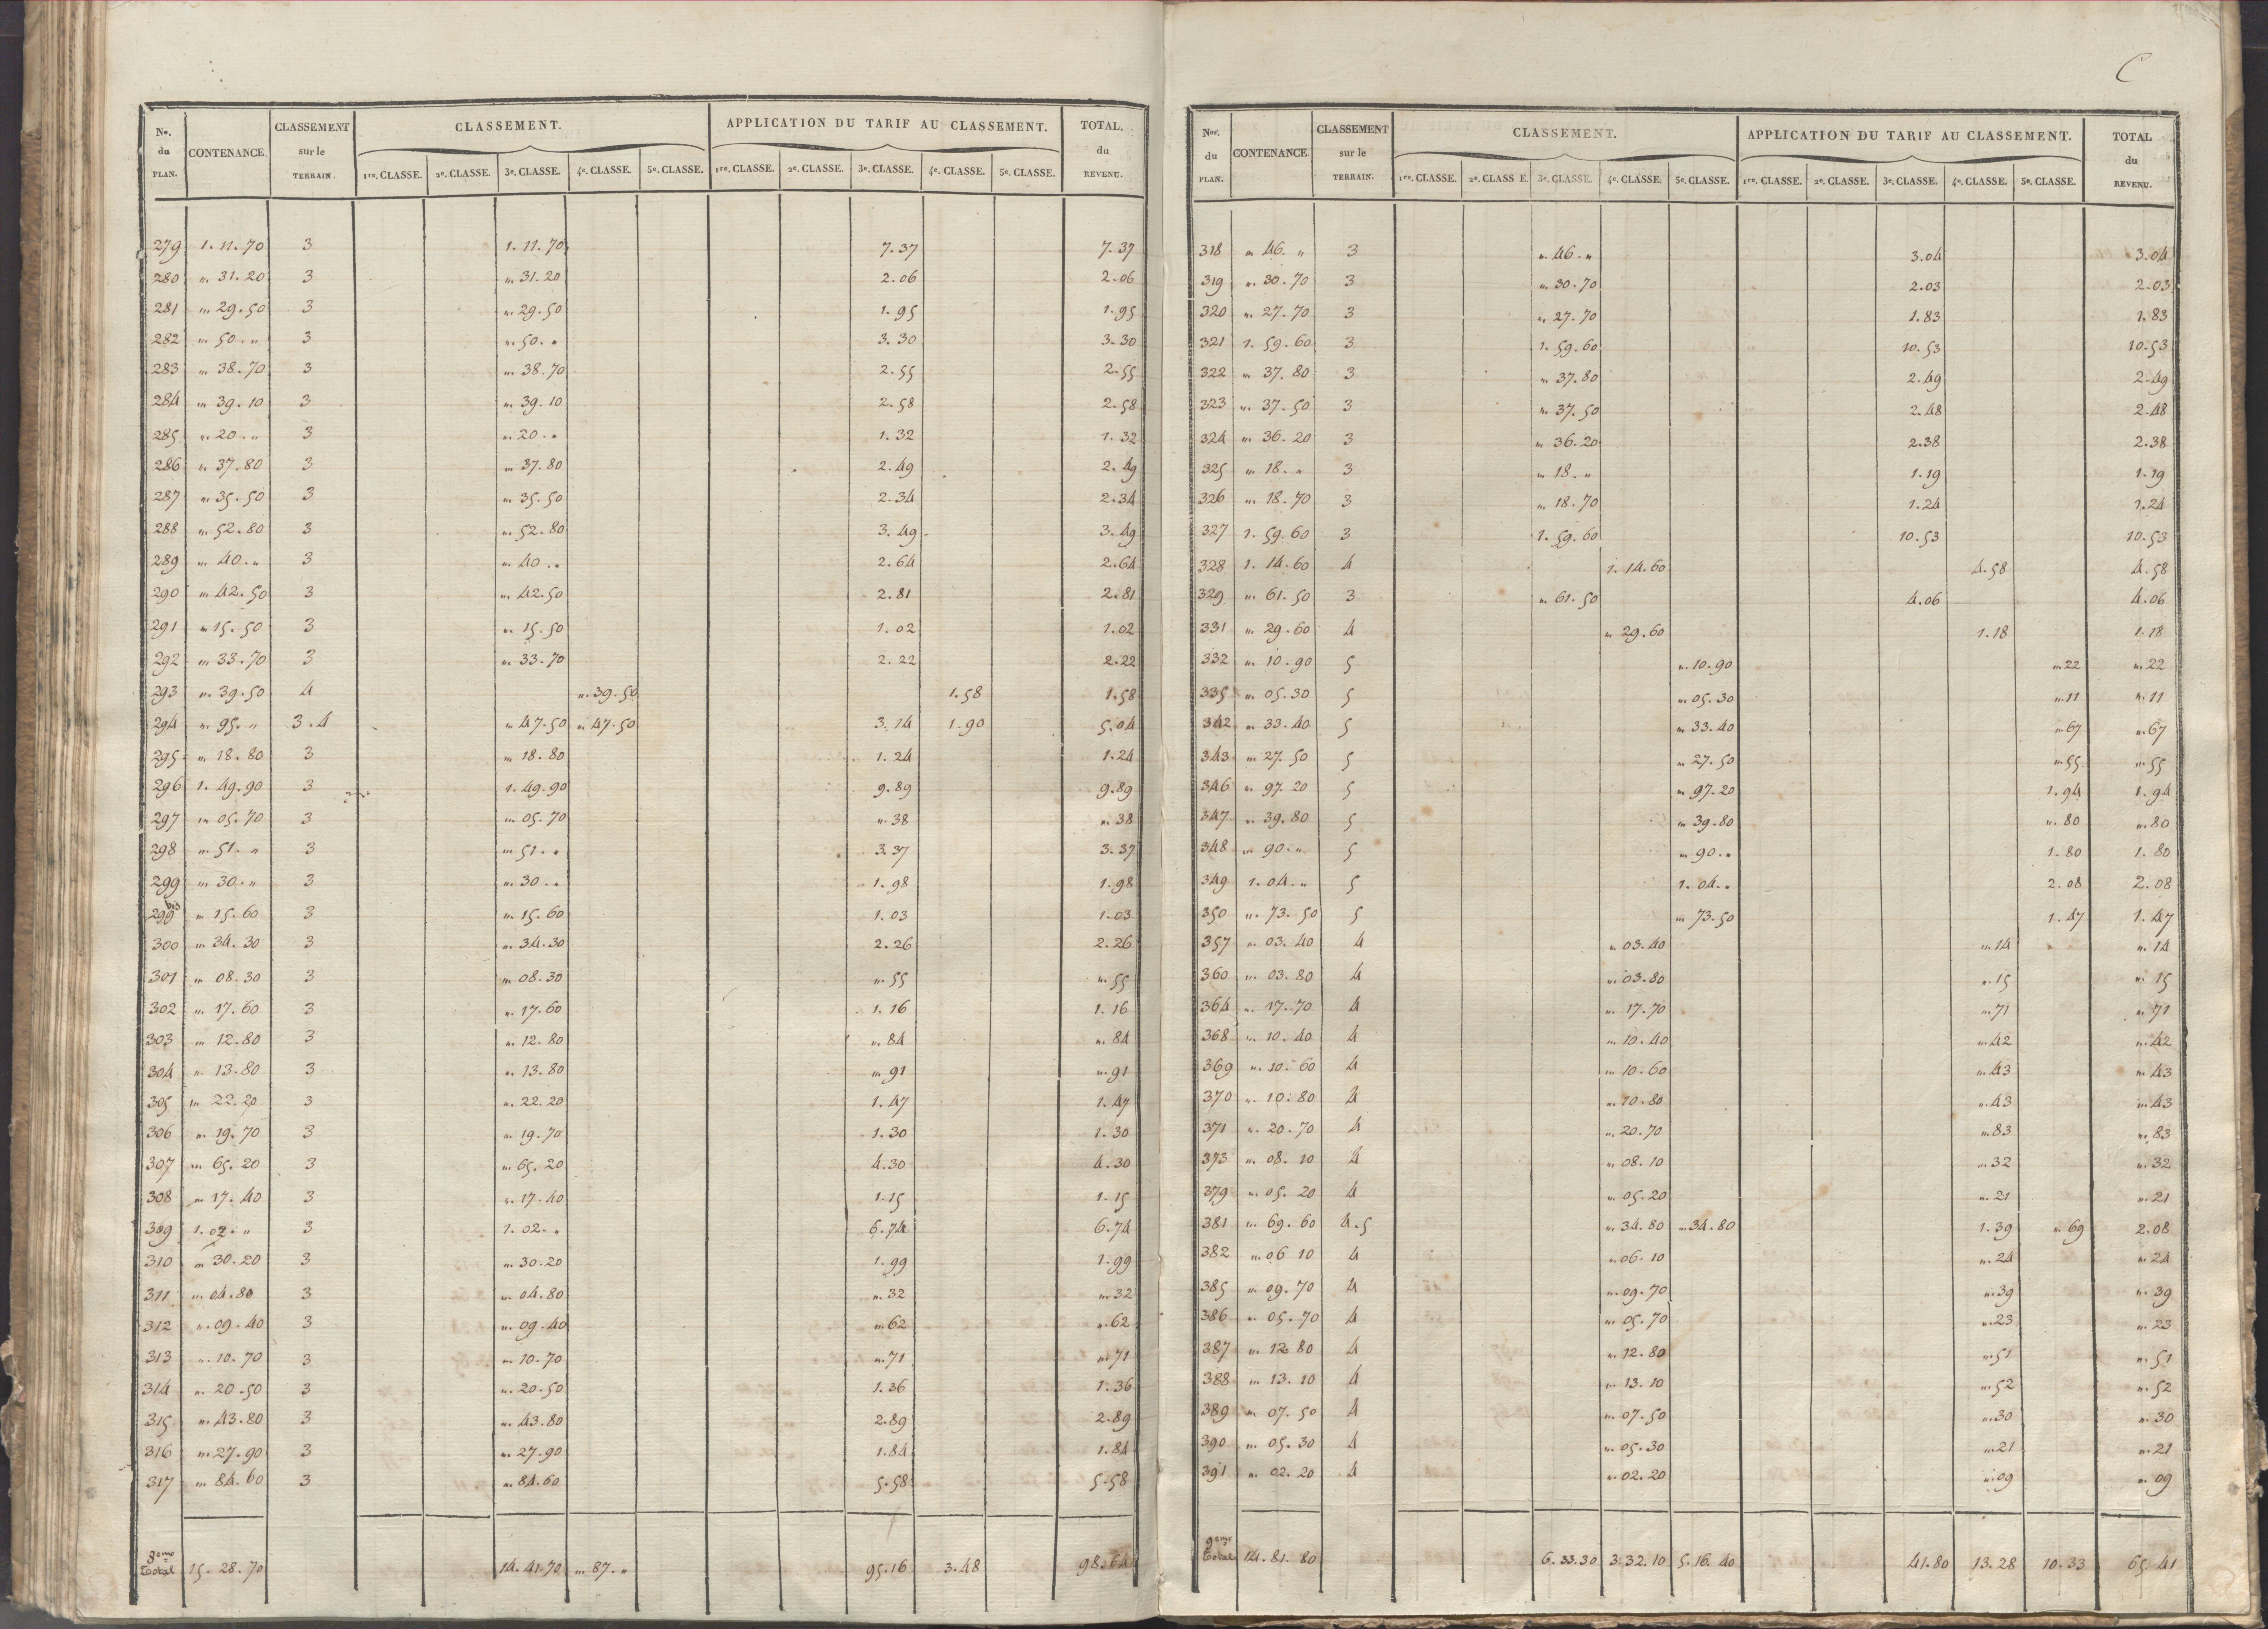 C
Nos. du PLAN. CONTENANCE. CLASSEMENT sur le TERRAIN. CLASSEMENT. APPLICATION DU TARIF AU CLASSEMENT. TOTAL. du REVENU.
1re. CLASSE. 2e. CLASSE. 3e. CLASSE. 4e. CLASSE. 5e. CLASSE. 1re. CLASSE. 2e. CLASSE. 3e. CLASSE. 4e. CLASSE. 5e. CLASSE.
279 1. 11. 70 3 1. 11. 70 7. 37 7. 37
280 " 31. 20 3 " 31. 20 2. 06 2. 06
281 " 29. 50 3 " 29. 50 1. 95 1. 95
282 " 50. " 3 " 50. " 3. 30 3. 30
283 " 38. 70 3 " 38. 70 2. 55 2. 55
284 " 39. 10 3 " 39. 10 2. 58 2. 58
285 " 20. " 3 " 20. " 1. 32 1. 32
286 " 37. 80 3 " 37. 80 2. 49 2. 49
287 " 35. 50 3 " 35. 50 2. 34 2. 34
288 " 52. 80 3 " 52. 80 3. 49 3. 49
289 " 40. " 3 " 40. " 2. 64 2. 64
290 " 42. 50 3 " 42. 50 2. 81 2. 81
291 " 15. 50 3 " 15. 50 1. 02 1. 02
292 " 33. 70 3 " 33. 70 2. 22 2. 22
293 " 39. 50 4 " 39. 50 1. 58 1. 58
294 " 95. " 3. 4 " 47. 50 " 47. 50 3. 14 1. 90 5. 04
295 " 18. 80 3 " 18. 80 1. 24 1. 24
296 1. 49. 90 3 1. 49. 90 9. 89 9. 89
297 " 05. 70 3 " 05. 70 ". 38 ". 38
298 " 51. " 3 " 51. " 3. 37 3. 37
299 " 30. " 3 " 30. " 1. 98 1. 98
299 bis " 15. 60 3 " 15. 60 1. 03 1. 03
300 " 34. 30 3 " 34. 30 2. 26 2. 26
301 " 08. 30 3 " 08. 30 ". 55 ". 55
302 " 17. 60 3 " 17. 60 1. 16 1. 16
303 " 12. 80 3 " 12. 80 ". 84 ". 84
304 " 13. 80 3 " 13. 80 ". 91 ". 91
305 " 22. 20 3 " 22. 20 1. 47 1. 47
306 " 19. 70 3 " 19. 70 1. 30 1. 30
307 " 65. 20 3 " 65. 20 4. 30 4. 30
308 " 17. 40 3 " 17. 40 1. 15 1. 15
309 1. 02. " 3 1. 02. " 6. 74 6. 74
310 " 30. 20 3 " 30. 20 1. 99 1. 99
311 " 04. 80 3 " 04. 80 ". 32 ". 32
312 " 09. 40 3 " 09. 40 ". 62 ". 62
313 " 10. 70 3 " 10. 70 ". 71 ". 71
314 " 20. 50 3 " 20. 50 1. 36 1. 36
315 " 43. 80 3 " 43. 80 2. 89 2. 89
316 " 27. 90 3 " 27. 90 1. 84 1. 84
317 " 84. 60 3 " 84. 60 5. 58 5. 58
8eme Total 15. 28. 70 14. 41. 70 " 87. " 95. 16 3. 48 98. 64
Nos. du PLAN. CONTENANCE. CLASSEMENT sur le TERRAIN. CLASSEMENT. APPLICATION DU TARIF AU CLASSEMENT. TOTAL du REVENU.
1re. CLASSE. 2e. CLASS E. 3e. CLASSE. 4e. CLASSE. 5e. CLASSE. 1re. CLASSE. 2e. CLASSE. 3e. CLASSE. 4e. CLASSE. 5e. CLASSE.
318 " 46. " 3 " 46. " 3. 04 3. 04
319 " 30. 70 3 " 30. 70 2. 03 2. 03
320 " 27. 70 3 " 27. 70 1. 83 1. 83
321 1. 59. 60 3 1. 59. 60 10. 53 10. 53
322 " 37. 80 3 " 37. 80 2. 49 2. 49
323 " 37. 50 3 " 37. 50 2. 48 2. 48
324 " 36. 20 3 " 36. 20 2. 38 2. 38
325 " 18. " 3 " 18. " 1. 19 1. 19
326 " 18. 70 3 " 18. 70 1. 24 1. 24
327 1. 59. 60 3 1. 59. 60 10. 53 10. 53
328 1. 14. 60 4 1. 14. 60 4. 58 4. 58
329 " 61. 50 3 " 61. 50 4. 06 4. 06
331 " 29. 60 4 " 29. 60 1. 18 1. 18
332 " 10. 90 5 " 10. 90 ". 22 ". 22
335 " 05. 30 5 " 05. 30 ". 11 ". 11
342 " 33. 40 5 " 33. 40 ". 67 ". 67
343 " 27. 50 5 " 27. 50 ". 55 ". 55
346 " 97. 20 5 " 97. 20 1. 94 1. 94
347 " 39. 80 5 " 39. 80 ". 80 ". 80
348 " 90. " 5 " 90. " 1. 80 1. 80
349 1. 04. " 5 1. 04. " 2. 08 2. 08
350 " 73. 50 5 " 73. 50 1. 47 1. 47
357 " 03. 40 4 " 03. 40 ". 14 ". 14
360 " 03. 80 4 " 03. 80 ". 15 ". 15
364 " 17. 70 4 " 17. 70 ". 71 ". 71
368 " 10. 40 4 " 10. 40 ". 42 ". 42
369 " 10. 60 4 " 10. 60 ". 43 ". 43
370 " 10. 80 4 " 10. 80 ". 43 ". 43
371 " 20. 70 4 " 20. 70 ". 83 ". 83
373 " 08. 10 4 " 08. 10 ". 32 ". 32
379 " 05. 20 4 " 05. 20 ". 21 ". 21
381 " 69. 60 4. 5 " 34. 80 " 34. 80 1. 39 ". 69 2. 08
382 " 06 10 4 " 06. 10 ". 24 ". 24
385 " 09. 70 4 " 09. 70 ". 39 ". 39
386 " 05. 70 4 " 05. 70 ". 23 ". 23
387 " 12. 80 4 " 12. 80 ". 51 ". 51
388 " 13. 10 4 " 13. 10 ". 52 ". 52
389 " 07. 50 4 " 07. 50 ". 30 ". 30
390 " 05. 30 4 " 05. 30 ". 21 ". 21
391 " 02. 20 4 " 02. 20 ". 09 ". 09
9eme Total 14. 81. 80 6. 33. 30 3. 32. 10 5. 16. 40 41. 80 13. 28 10. 33 65. 41